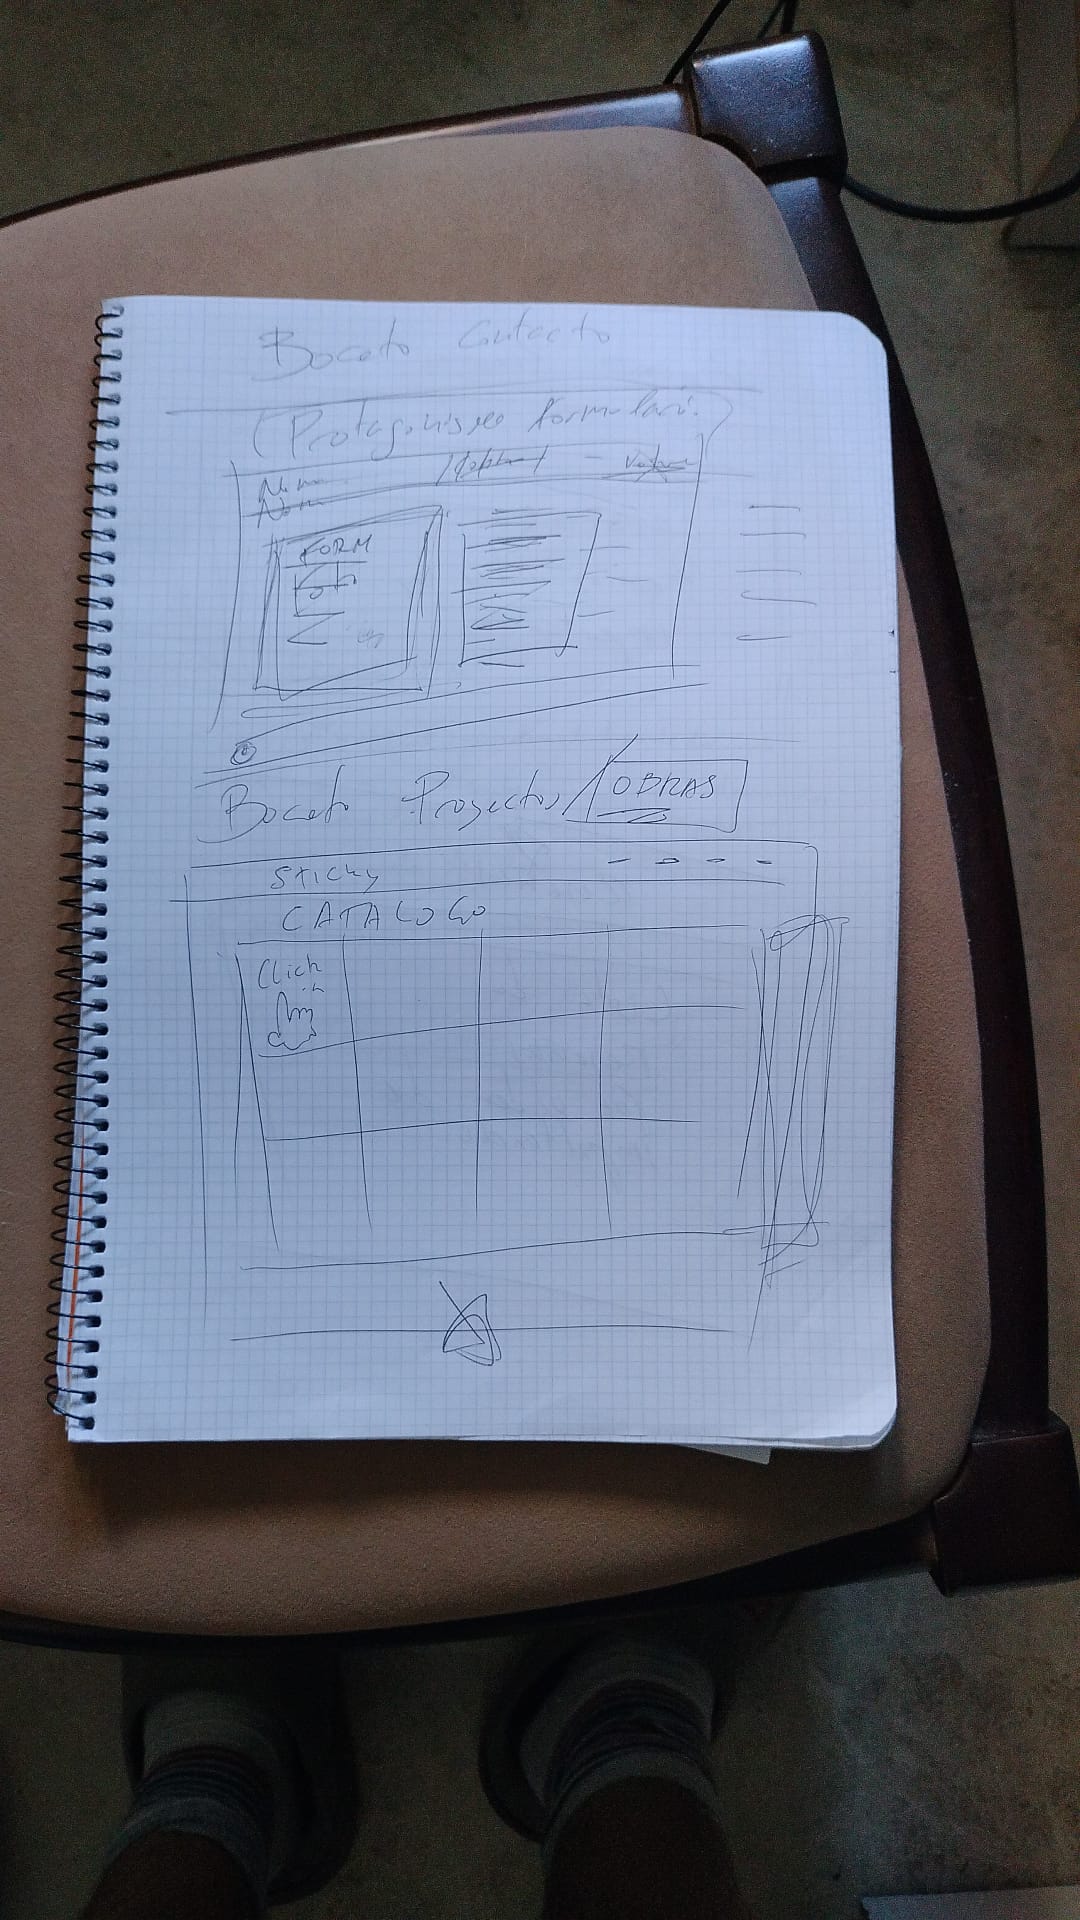 Boceto Contacto
(Protagonismo formulario)
Nom
Nom
FORM
Boceto Proyectos / OBRAS
Sticky
CATALOGO
Click